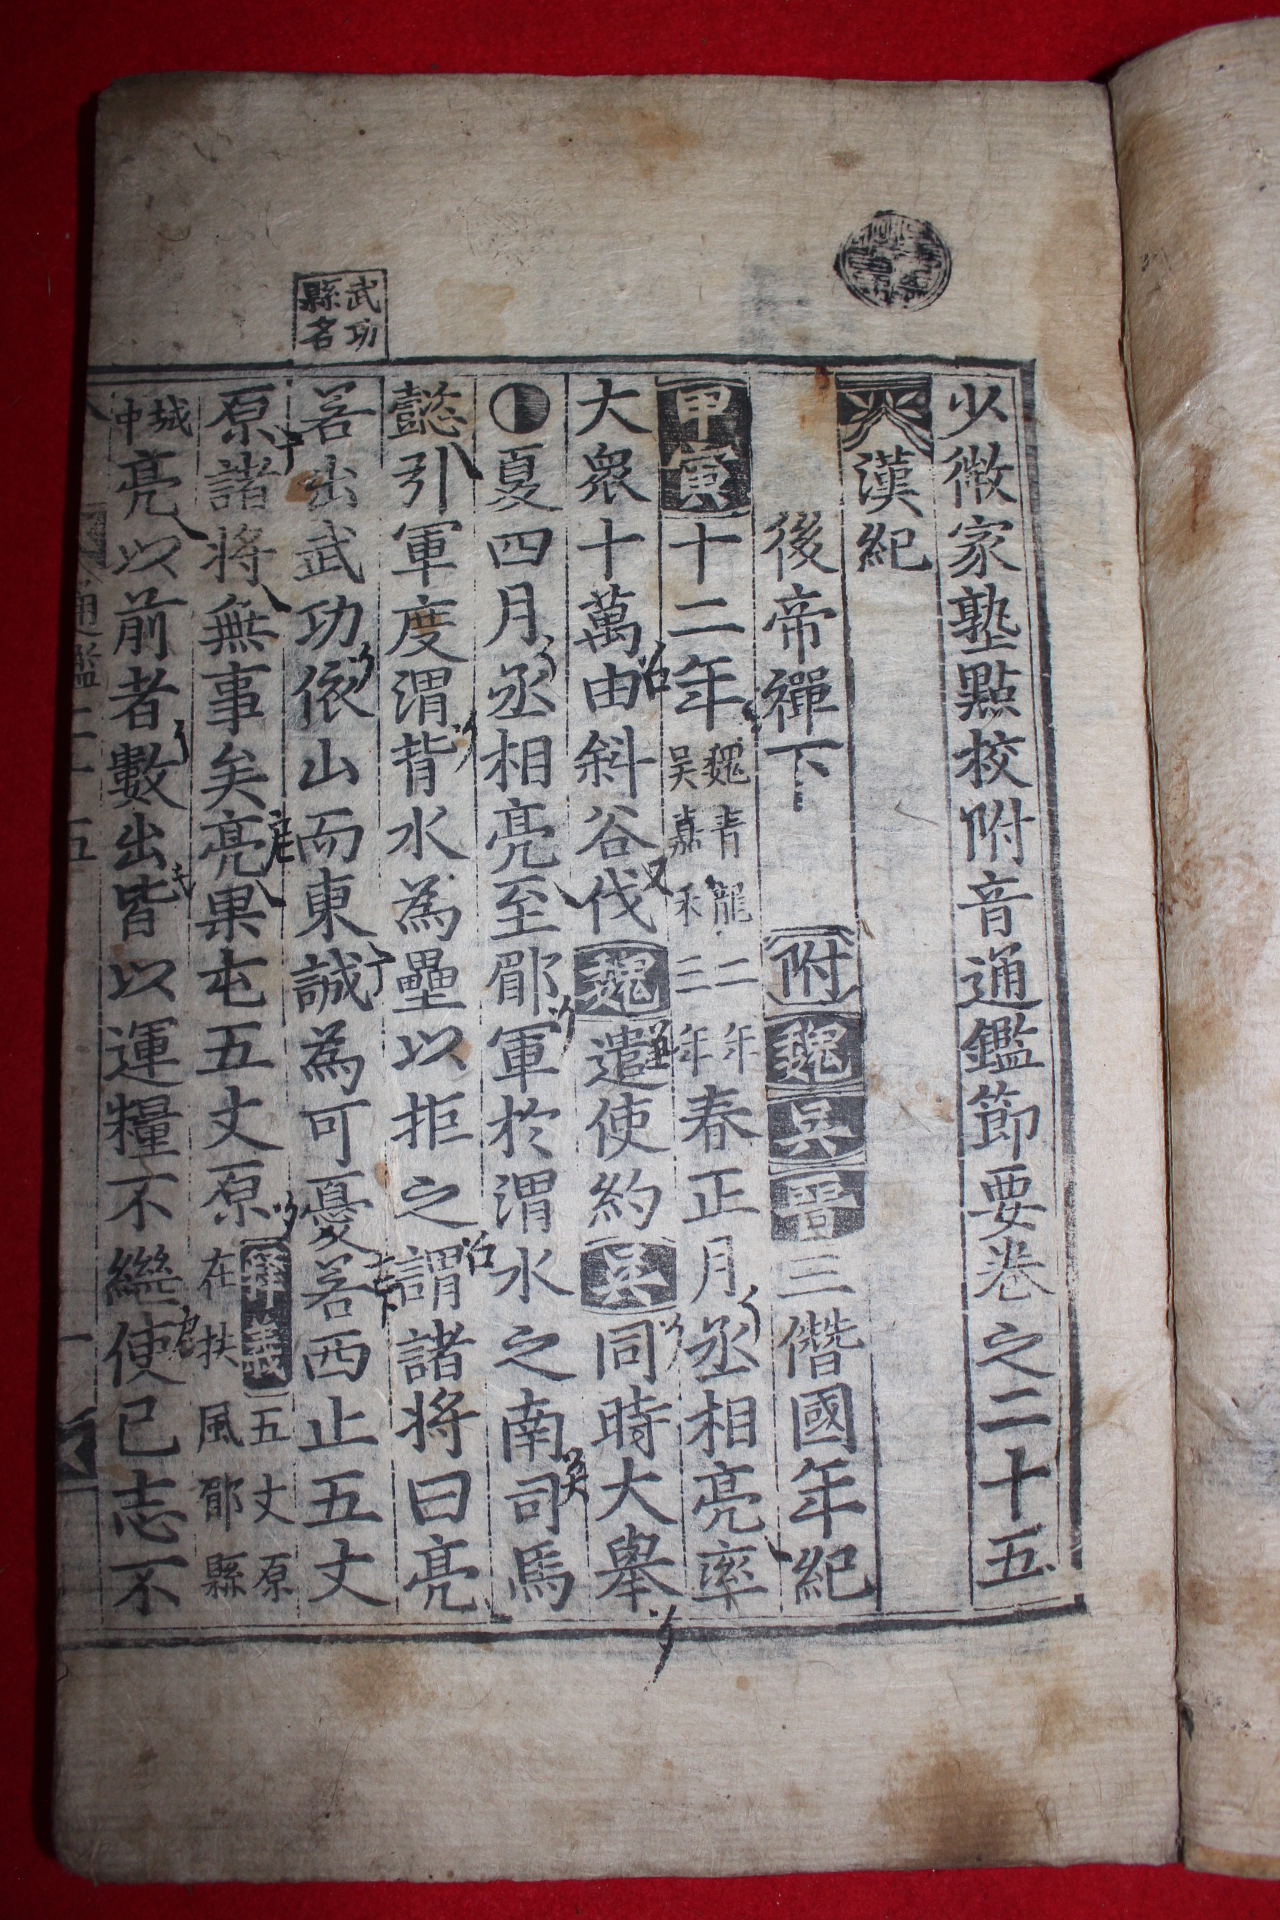 少微家塾點校附音通鑑節要卷之二十五
漢紀
後帝禪下 附魏吳晋三僭國年紀
甲寅十二年魏青龍二年吳嘉禾三年春正月丞相亮率
大衆十萬由斜谷伐魏遣使約吳同時大擧
夏四月丞相亮至郿軍於渭水之南司馬
懿引軍度渭背水為壘以拒之謂諸將曰亮
武功縣名
若出武功依山而東誠為可憂若西止五丈
原諸將無事矣亮果屯五丈原釋義五丈原在扶風郿縣
城中亮以前者數出皆以運糧不繼使己志不
通鑑二十五
一